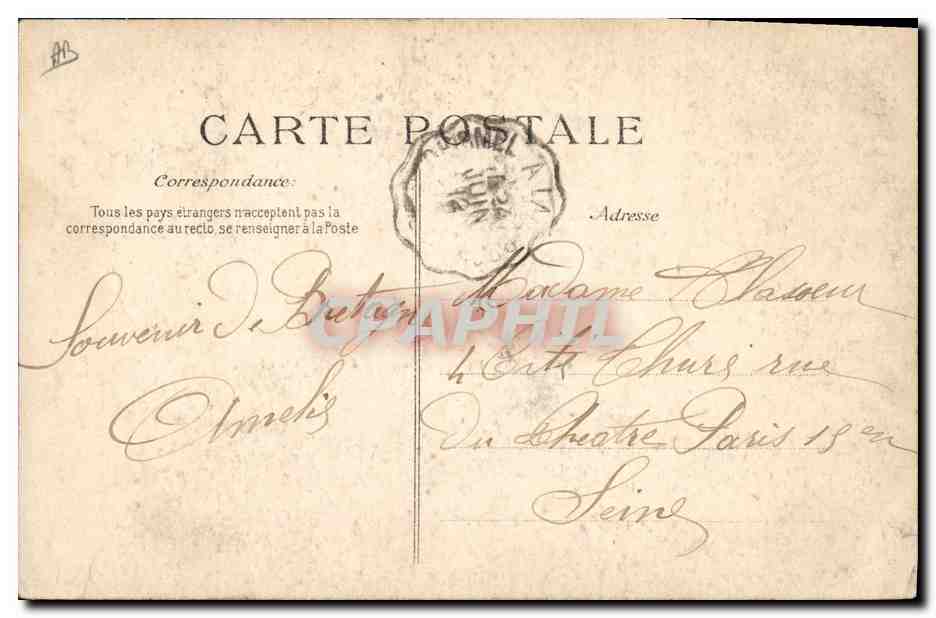 AB
CARTE POSTALE
Correspondance:
Tous les pays étrangers n'acceptent pas la
correspondance au recto, se renseigner à la Poste
Adresse
JUIN
CPAPHIL
Souvenir de Bretagn
Amelis
Madame
4 Cité Thuré rue
Du theatre Paris 15 en
Seine